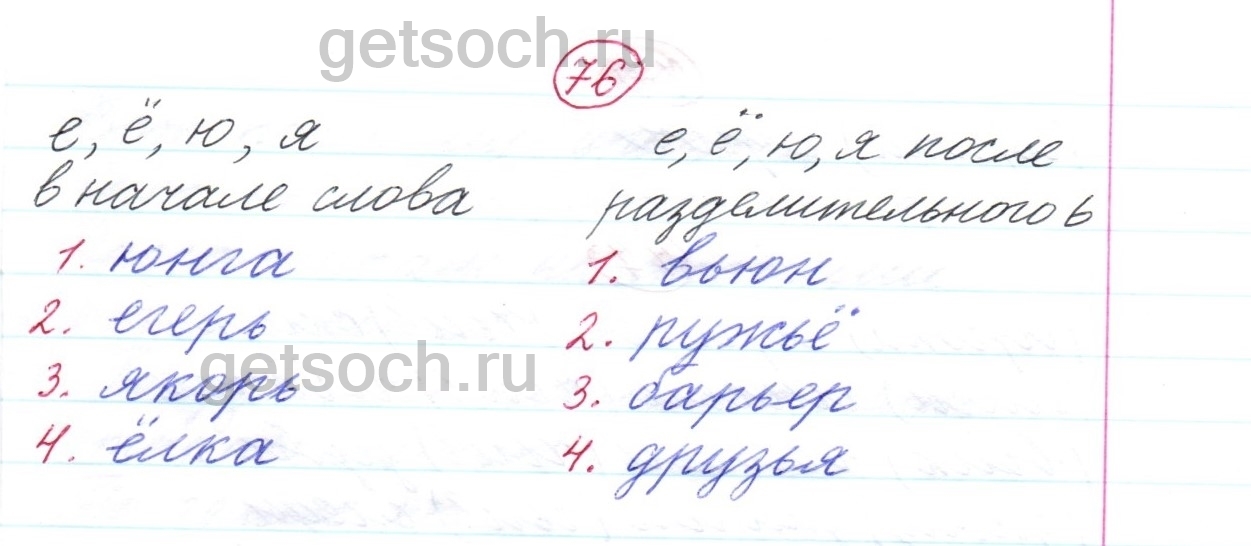 getsoch.ru
76
е, ё, ю, я
в начале слова
1. юнга
2. егерь
3. якорь
4. ёлка
е, ё, ю, я после
разделительного ь
1. вьюн
2. ружьё
3. барьер
4. друзья
getsoch.ru